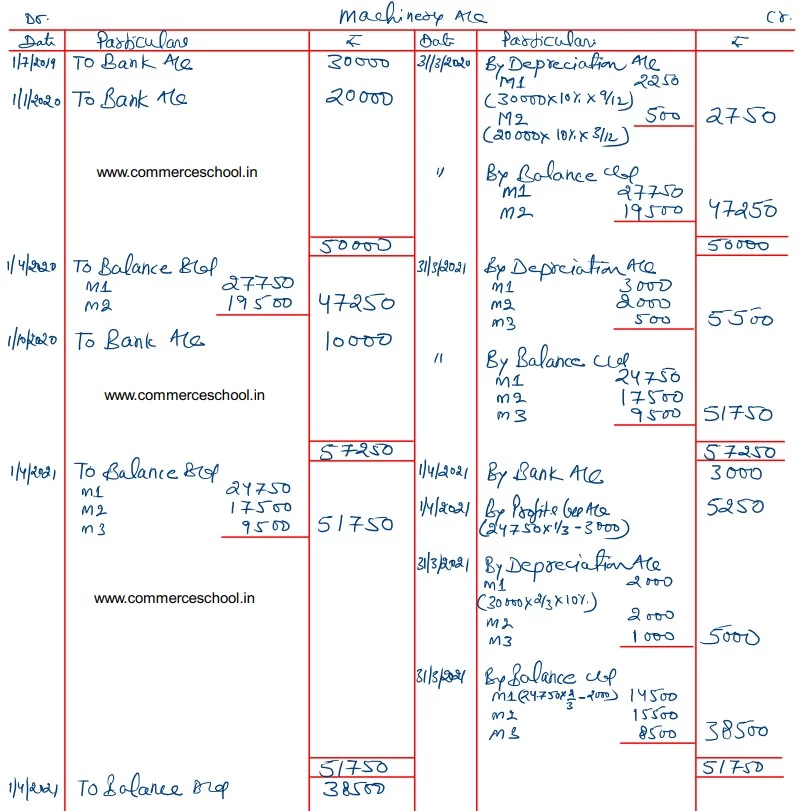 Dr. Machinery A/c Cr.
Date Particulars ₹ Date Particulars ₹
1/7/2019 To Bank A/c 30000 31/3/2020 By Depreciation A/c
M1 2250
1/1/2020 To Bank A/c 20000 (30000x10%x9/12)
M2 500 2750
(20000x10%x3/12)
www.commerceschool.in
" By Balance c/d
M1 27750
M2 19500 47250
50000 50000
1/4/2020 To Balance B/d 31/3/2021 By Depreciation A/c
M1 27750 M1 3000
M2 19500 47250 M2 2000
M3 500 5500
1/10/2020 To Bank A/c 10000
" By Balance c/d
M1 24750
www.commerceschool.in M2 17500
M3 9500 51750
57250 57250
1/4/2021 To Balance B/d 1/4/2021 By Bank A/c 3000
M1 24750
M2 17500 1/4/2021 By Profit & Loss A/c 5250
M3 9500 51750 (24750x1/3-3000)
31/3/2021 By Depreciation A/c
M1 2000
www.commerceschool.in (30000x2/3x10%)
M2 2000
M3 1000 5000
31/3/2021 By Balance c/d
M1 (24750x2/3-2000) 14500
M2 15500
M3 8500 38500
51750 51750
1/4/2021 To Balance B/d 38500